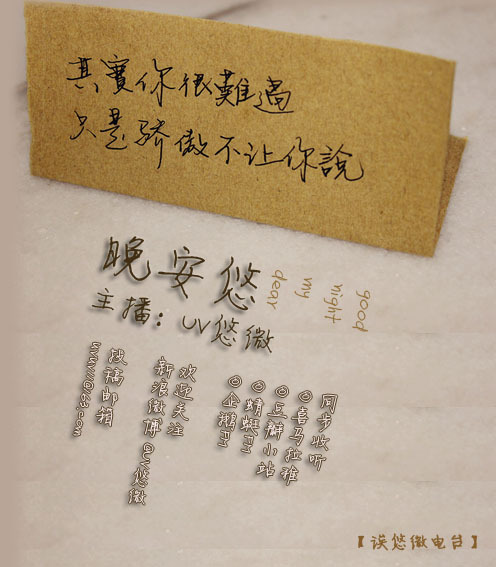 其實你很難過
只是骄傲不让你說
晚安悠
good
night
my
dear
主播：UV悠微
同步收听
◎喜马拉雅
◎豆瓣小站
◎蜻蜓FM
◎企鹅FM
欢迎关注
新浪微博@UV悠微
投稿邮箱
【误悠微电台】